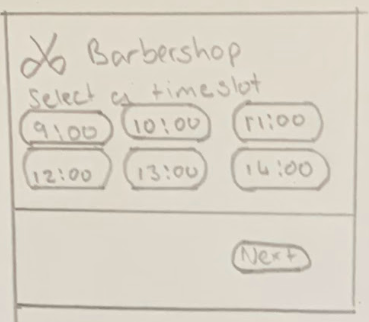 Barbershop
Select a timeslot
9:00 10:00 11:00
12:00 13:00 14:00
Next